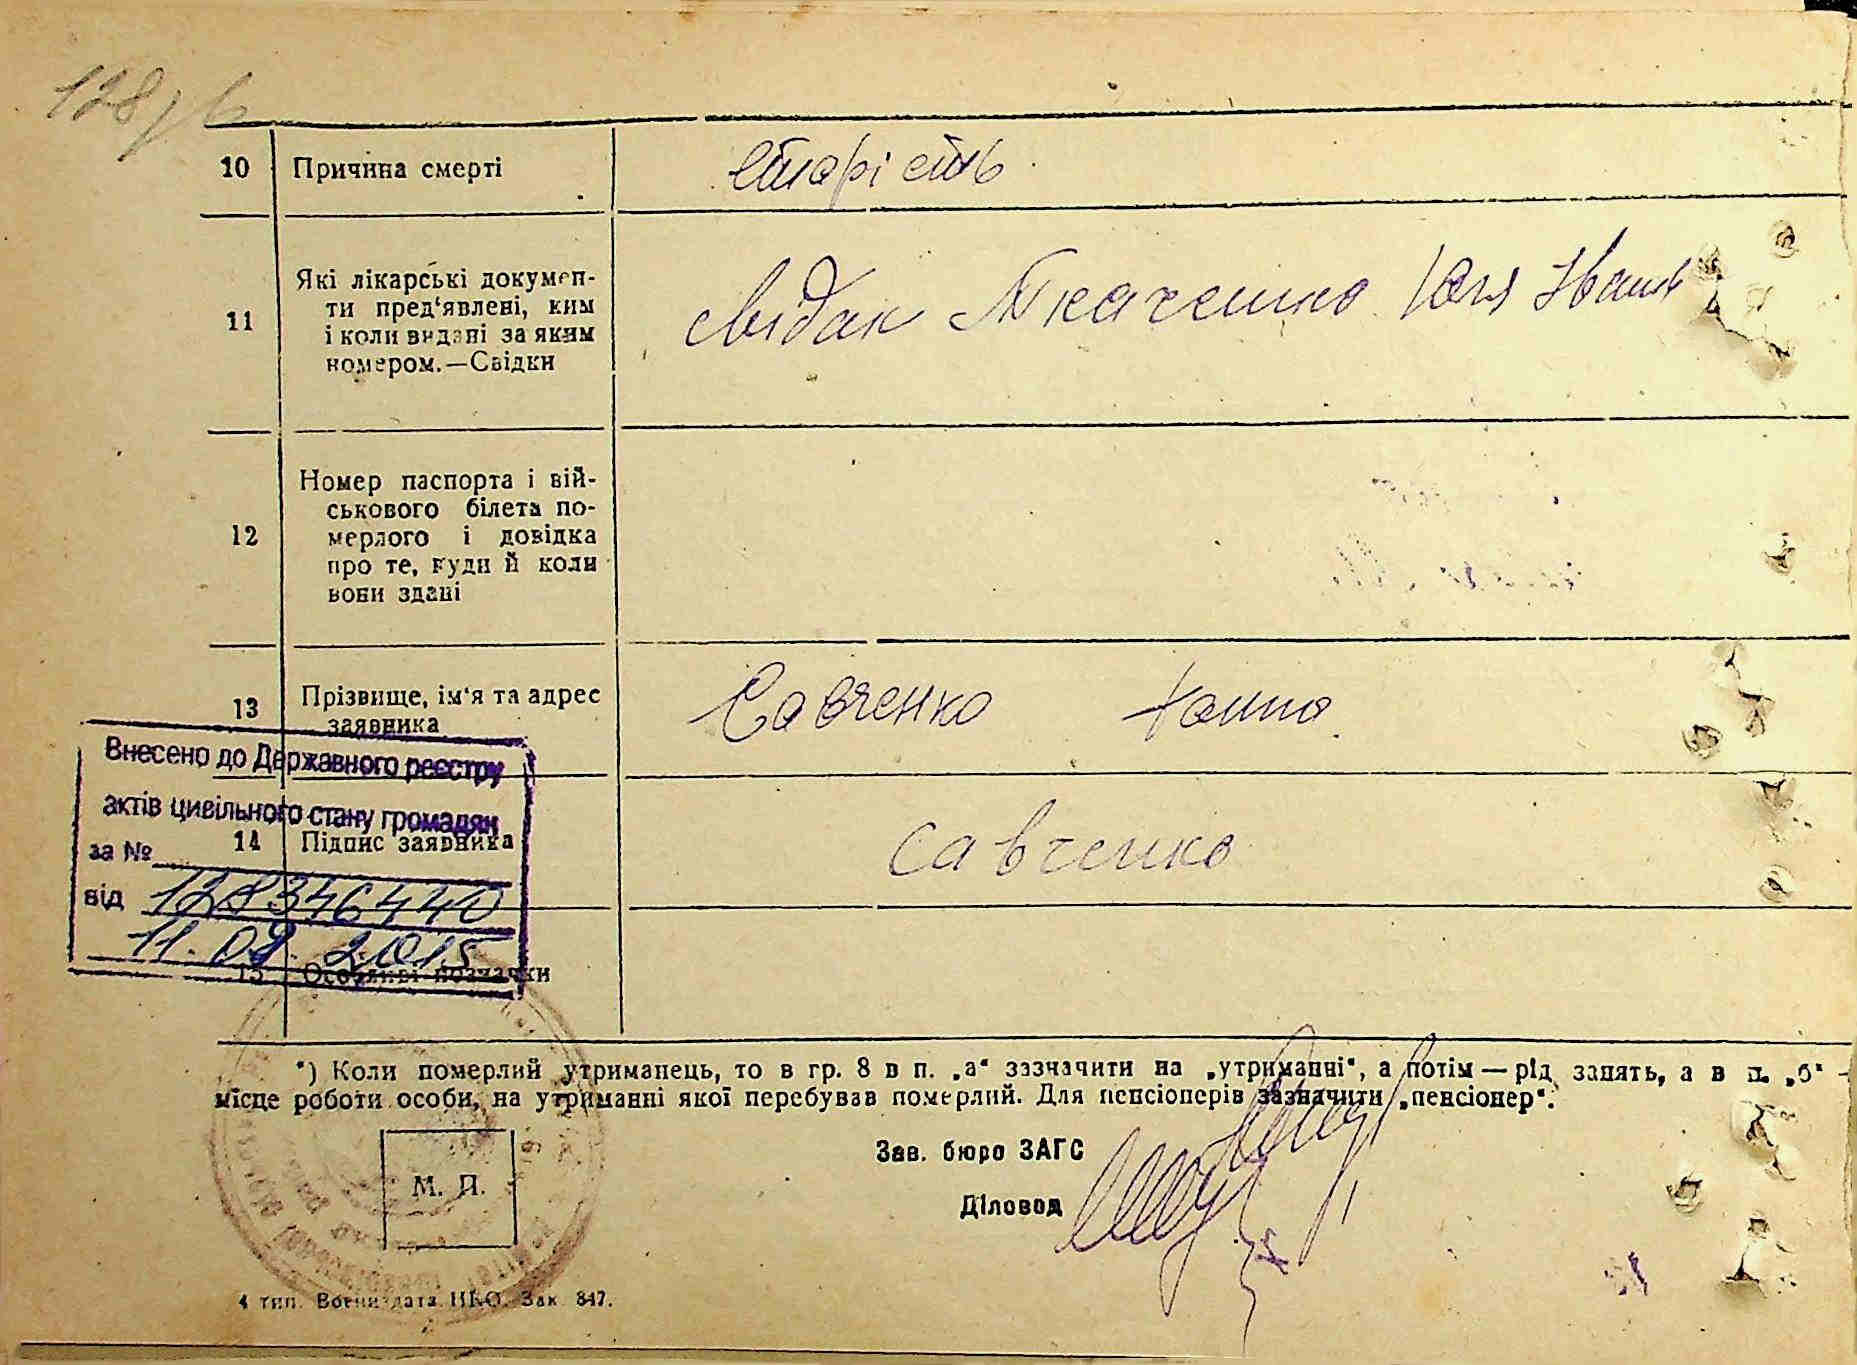 128
10 Причина смерті старість
11 Які лікарські докумен-
ти пред'явлені, ким
і коли видані за яким
номером.—Свідки
свідак Ткаченко Юля Іван
12 Номер паспорта і вій-
ськового білета по-
мерлого і довідка
про те, куди й коли
вони здані
13 Прізвище, ім'я та адрес
заявника
Савченко Ганна.
Внесено до Державного реєстру
актів цивільного стану громадян
за №
від 128346440
11.08.2015
14 Підпис заявника савченко
15 Особливі позначки
*) Коли померлий утриманець, то в гр. 8 в п. „а“ зазначити на „утриманні“, а потім — рід занять, а в п. „б“ -
місце роботи особи, на утриманні якої перебував померлий. Для пенсіонерів зазначити „пенсіонер“.
Зав. бюро ЗАГС
М. П.
Діловод
4 тип. Воениздата НКО. Зак. 847.